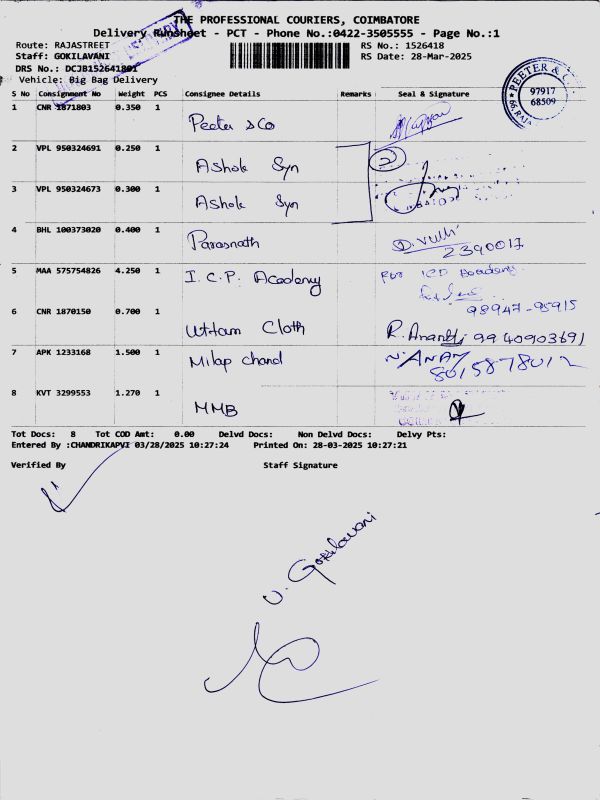 THE PROFESSIONAL COURIERS, COIMBATORE
Delivery Runsheet - PCT - Phone No.:0422-3505555 - Page No.:1
Route: RAJASTREET RS No.: 1526418
Staff: GOKILAVANI RS Date: 28-Mar-2025
DRS No.: DCJB152641801
Vehicle: Big Bag Delivery
PEETER & C
97917
68509
S No Consignment No Weight PCS Consignee Details Remarks Seal & Signature
1 CNR 1871803 0.350 1 Peeter & Co
2 VPL 950324691 0.250 1 Ashok Syn 2
3 VPL 950324673 0.300 1 Ashok Syn
4 BHL 100373020 0.400 1 Parasnath D. Vulli 2390017
5 MAA 575754826 4.250 1 I.C.P. Academy For ICD
98947-95915
6 CNR 1870150 0.700 1 Uttam Cloth R. Anandhi 9940903691
7 APK 1233168 1.500 1 Milap chand N. ANAN 8015878012
8 KVT 3299553 1.270 1 MMB
Tot Docs: 8 Tot COD Amt: 0.00 Delvd Docs: Non Delvd Docs: Delvy Pts:
Entered By :CHANDRIKAPVI 03/28/2025 10:27:24 Printed On: 28-03-2025 10:27:21
Verified By Staff Signature
U. Gokilavani